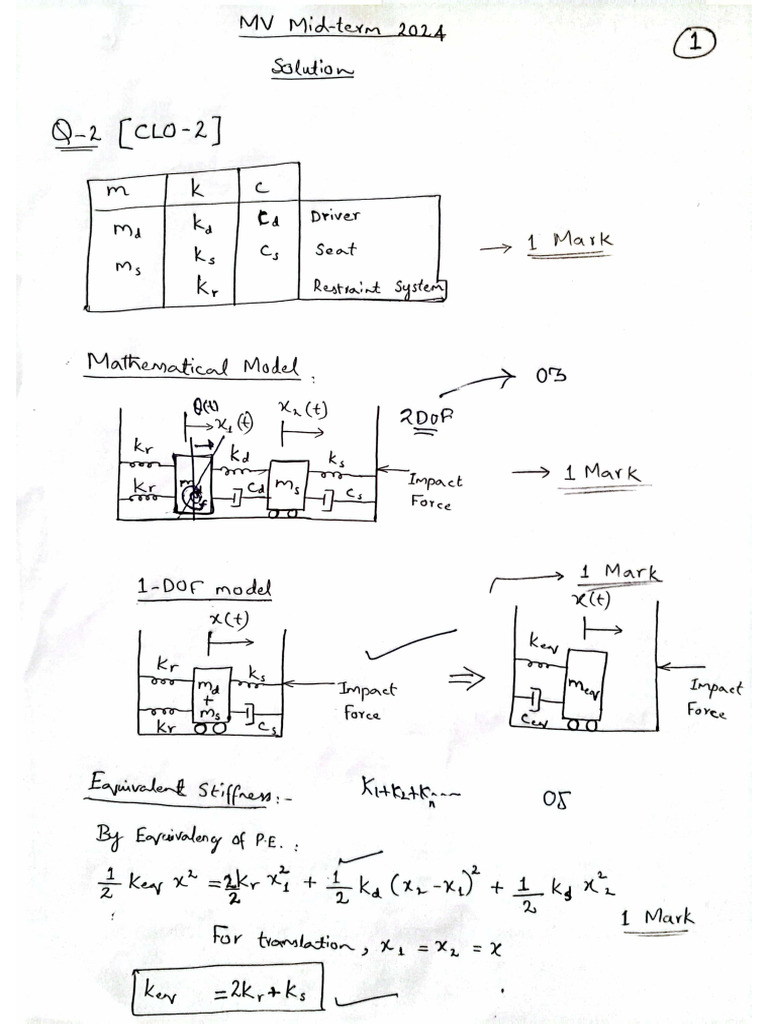 MV Mid-term 2024
1
Solution
Q-2 [CLO-2]
m k c
m_d k_d c_d Driver
m_s k_s c_s Seat
k_r Restraint System
→ 1 Mark
Mathematical Model :
→ 03
θ(t) x_1(t) x_2(t) 2DOF
k_r k_d k_s
k_r c_d m_s c_s
Impact
Force
→ 1 Mark
1-DOF model
→ 1 Mark
x(t) x(t)
k_r m_d + m_s k_s
k_r c_s
Impact
Force
⇒
k_eq m_eq
c_eq
Impact
Force
Equivalent Stiffness:- K_1+K_2+K_n---- 05
By Equivalency of P.E. :
1/2 k_eq x² = 2/2 k_r x_1² + 1/2 k_d (x_2 - x_1)² + 1/2 k_s x_2²
1 Mark
For translation, x_1 = x_2 = x
k_eq = 2k_r + k_s